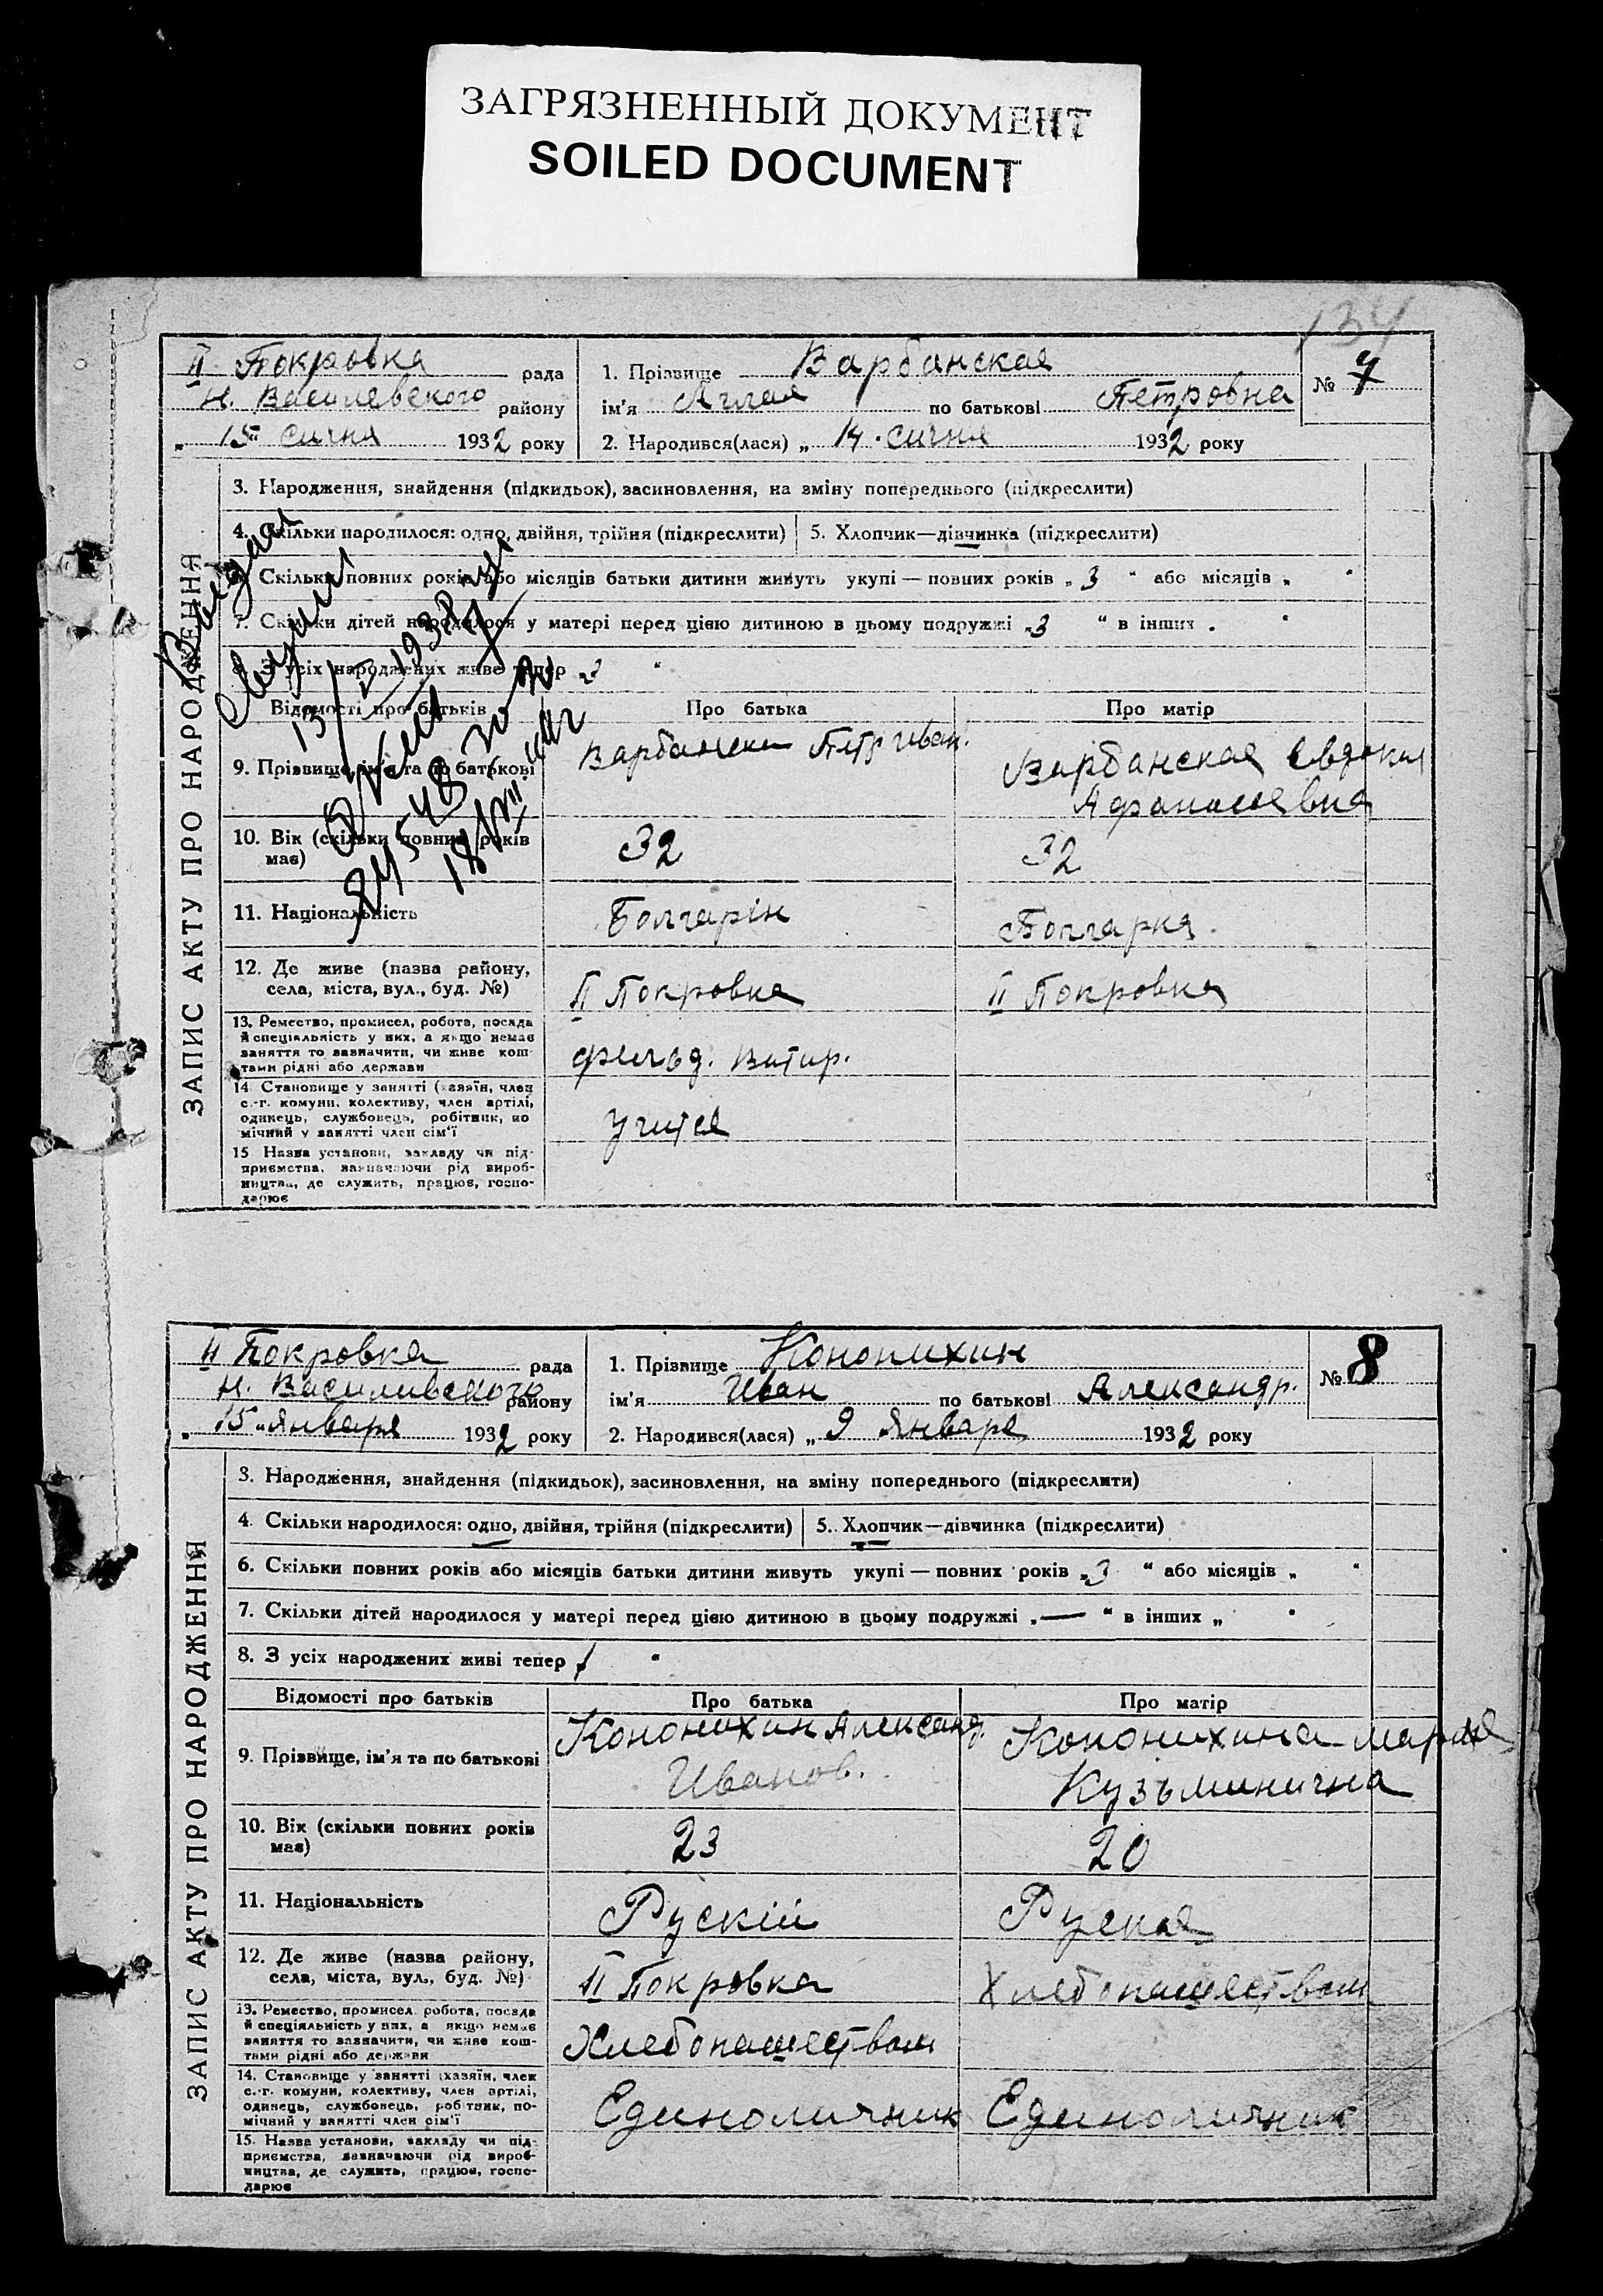 ЗАГРЯЗНЕННЫЙ ДОКУМЕНТ
SOILED DOCUMENT
134
ЗАПИС АКТУ ПРО НАРОДЖЕННЯ
II Покровка рада
Н. Василевского району
„ 15 сичня 1932 року
1. Прізвище Варбанская
ім'я по батькові Петровна
№ 7
2. Народився(лася) „ 14 сичня 1932 року
3. Народження, знайдення (підкидьок), засиновлення, на зміну попереднього (підкреслити)
4. Скільки народилося: одно, двійня, трійня (підкреслити) 5. Хлопчик—дівчинка (підкреслити)
6. Скільки повних років або місяців батьки дитини живуть укупі — повних років „ 3 “ або місяців „ “
7. Скільки дітей народилося у матері перед цією дитиною в цьому подружжі „ 3 “ в інших „ “
8. З усіх народжених живе тепер „ 3 “
13/V 1938
18/VII
Відомості про батьків Про батька Про матір
9. Прізвище, ім'я та по батькові
Варбански Петр Иван.
Варбанская Евдокия
Афанасевна
10. Вік (скільки повних років має) 32 32
11. Національність Болгарін Болгарка
12. Де живе (назва району,
села, міста, вул., буд. №) II Покровка II Покровка
13. Ремество, промисел, робота, посада
й спеціяльність у них, а якщо немає
заняття то зазначити, чи живе кош-
тами рідні або держави
фельд. Витир.
14. Становище у занятті (хазяїн, член
с.-г. комуни, колективу, член артілі,
одинець, службовець, робітник, по
мічний у занятті член сім'ї
Учитея
15. Назва установи, закладу чи під-
приємства, зазначаючи рід вироб-
ництва, де служить, працює, госпо-
дарює
ЗАПИС АКТУ ПРО НАРОДЖЕННЯ
II Покровка рада
Н. Василивского району
„ 15 „ Января 1932 року
1. Прізвище Кононихин
ім'я Иван по батькові Александр.
№ 8
2. Народився(лася) „ 9 Января 1932 року
3. Народження, знайдення (підкидьок), засиновлення, на зміну попереднього (підкреслити)
4. Скільки народилося: одно, двійня, трійня (підкреслити) 5. Хлопчик—дівчинка (підкреслити)
6. Скільки повних років або місяців батьки дитини живуть укупі — повних років „ 3 “ або місяців „ “
7. Скільки дітей народилося у матері перед цією дитиною в цьому подружжі „ — “ в інших „ “
8. З усіх народжених живі тепер 1 “
Відомості про батьків Про батька Про матір
9. Прізвище, ім'я та по батькові
Кононихин Александ.
Иванов.
Кононихина Мария
Кузьминична
10. Вік (скільки повних років має) 23 20
11. Національність Рускій Руская
12. Де живе (назва району,
села, міста, вул., буд. №) II Покровка Хлебопашеством
13. Ремество, промисел, робота, посада
й спеціяльність у них, а якщо немає
заняття то зазначити, чи живе кош-
тами рідні або держави
Хлебопашеством
14. Становище у занятті (хазяїн, член
с.-г. комуни, колективу, член артілі,
одинець, службовець, робітник, по-
мічний у занятті член сім'ї
Единоличник Единоличник
15. Назва установи, закладу чи під-
приємства, зазначаючи рід вироб-
ництва, де служить, працює, госпо-
дарює